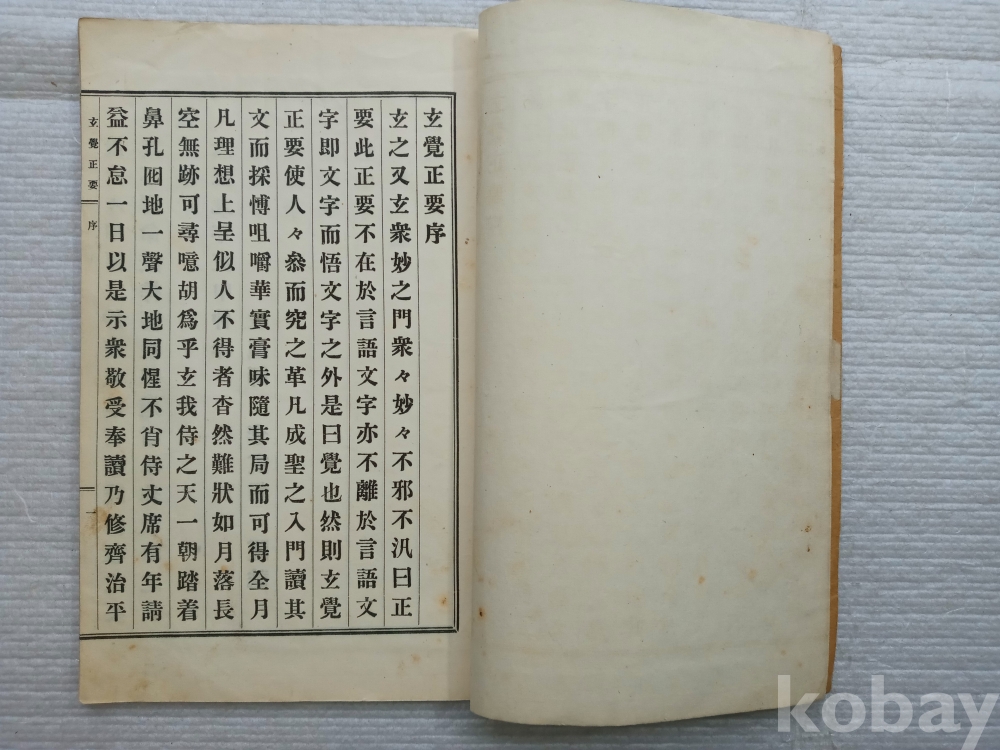 玄覺正要序
玄之又玄衆妙之門衆々妙々不邪不汎曰正
要此正要不在於言語文字亦不離於言語文
字即文字而悟文字之外是曰覺也然則玄覺
正要使人々叅而究之革凡成聖之入門讀其
文而採愽咀嚼華實膏味隨其局而可得全月
凡理想上呈似人不得者杳然難狀如月落長
空無跡可尋噫胡爲乎玄我侍之天一朝踏着
鼻孔囮地一聲大地同惺不肯侍丈席有年請
益不怠一日以是示衆敬受奉讀乃修齊治平
玄覺正要 序 一
kobay